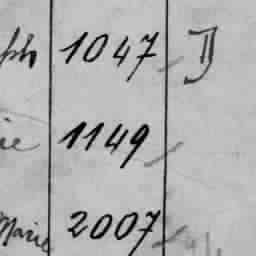 ph 1047 D
ie 1149
Marie 2007